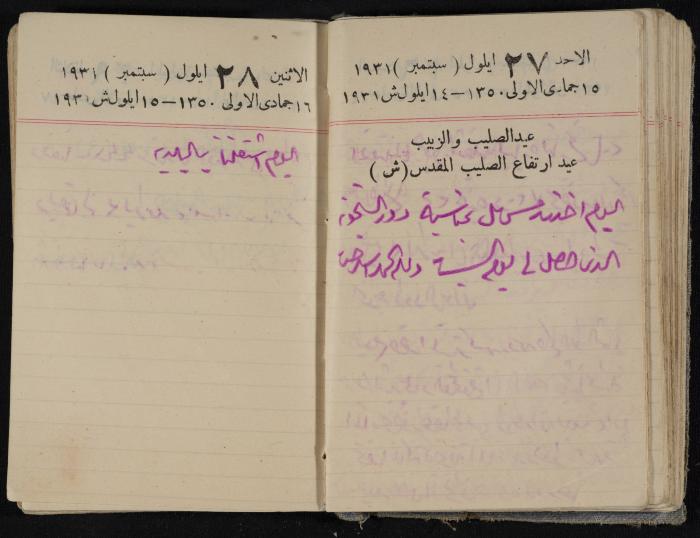 الاحد ٢٧ ايلول ( سبتمبر ) ١٩٣١
١٥ جمادى الاولى ١٣٥٠ – ١٤ ايلول ش ١٩٣١
عيد الصليب والزبيب
عيد ارتفاع الصليب المقدس (ش )
اليوم اخذنا
الذي حصل لي يوم السبت
الاثنين ٢٨ ايلول ( سبتمبر ) ١٩٣١
١٦ جمادى الاولى ١٣٥٠ – ١٥ ايلول ش ١٩٣١
اليوم اشتغلنا بالبلديه